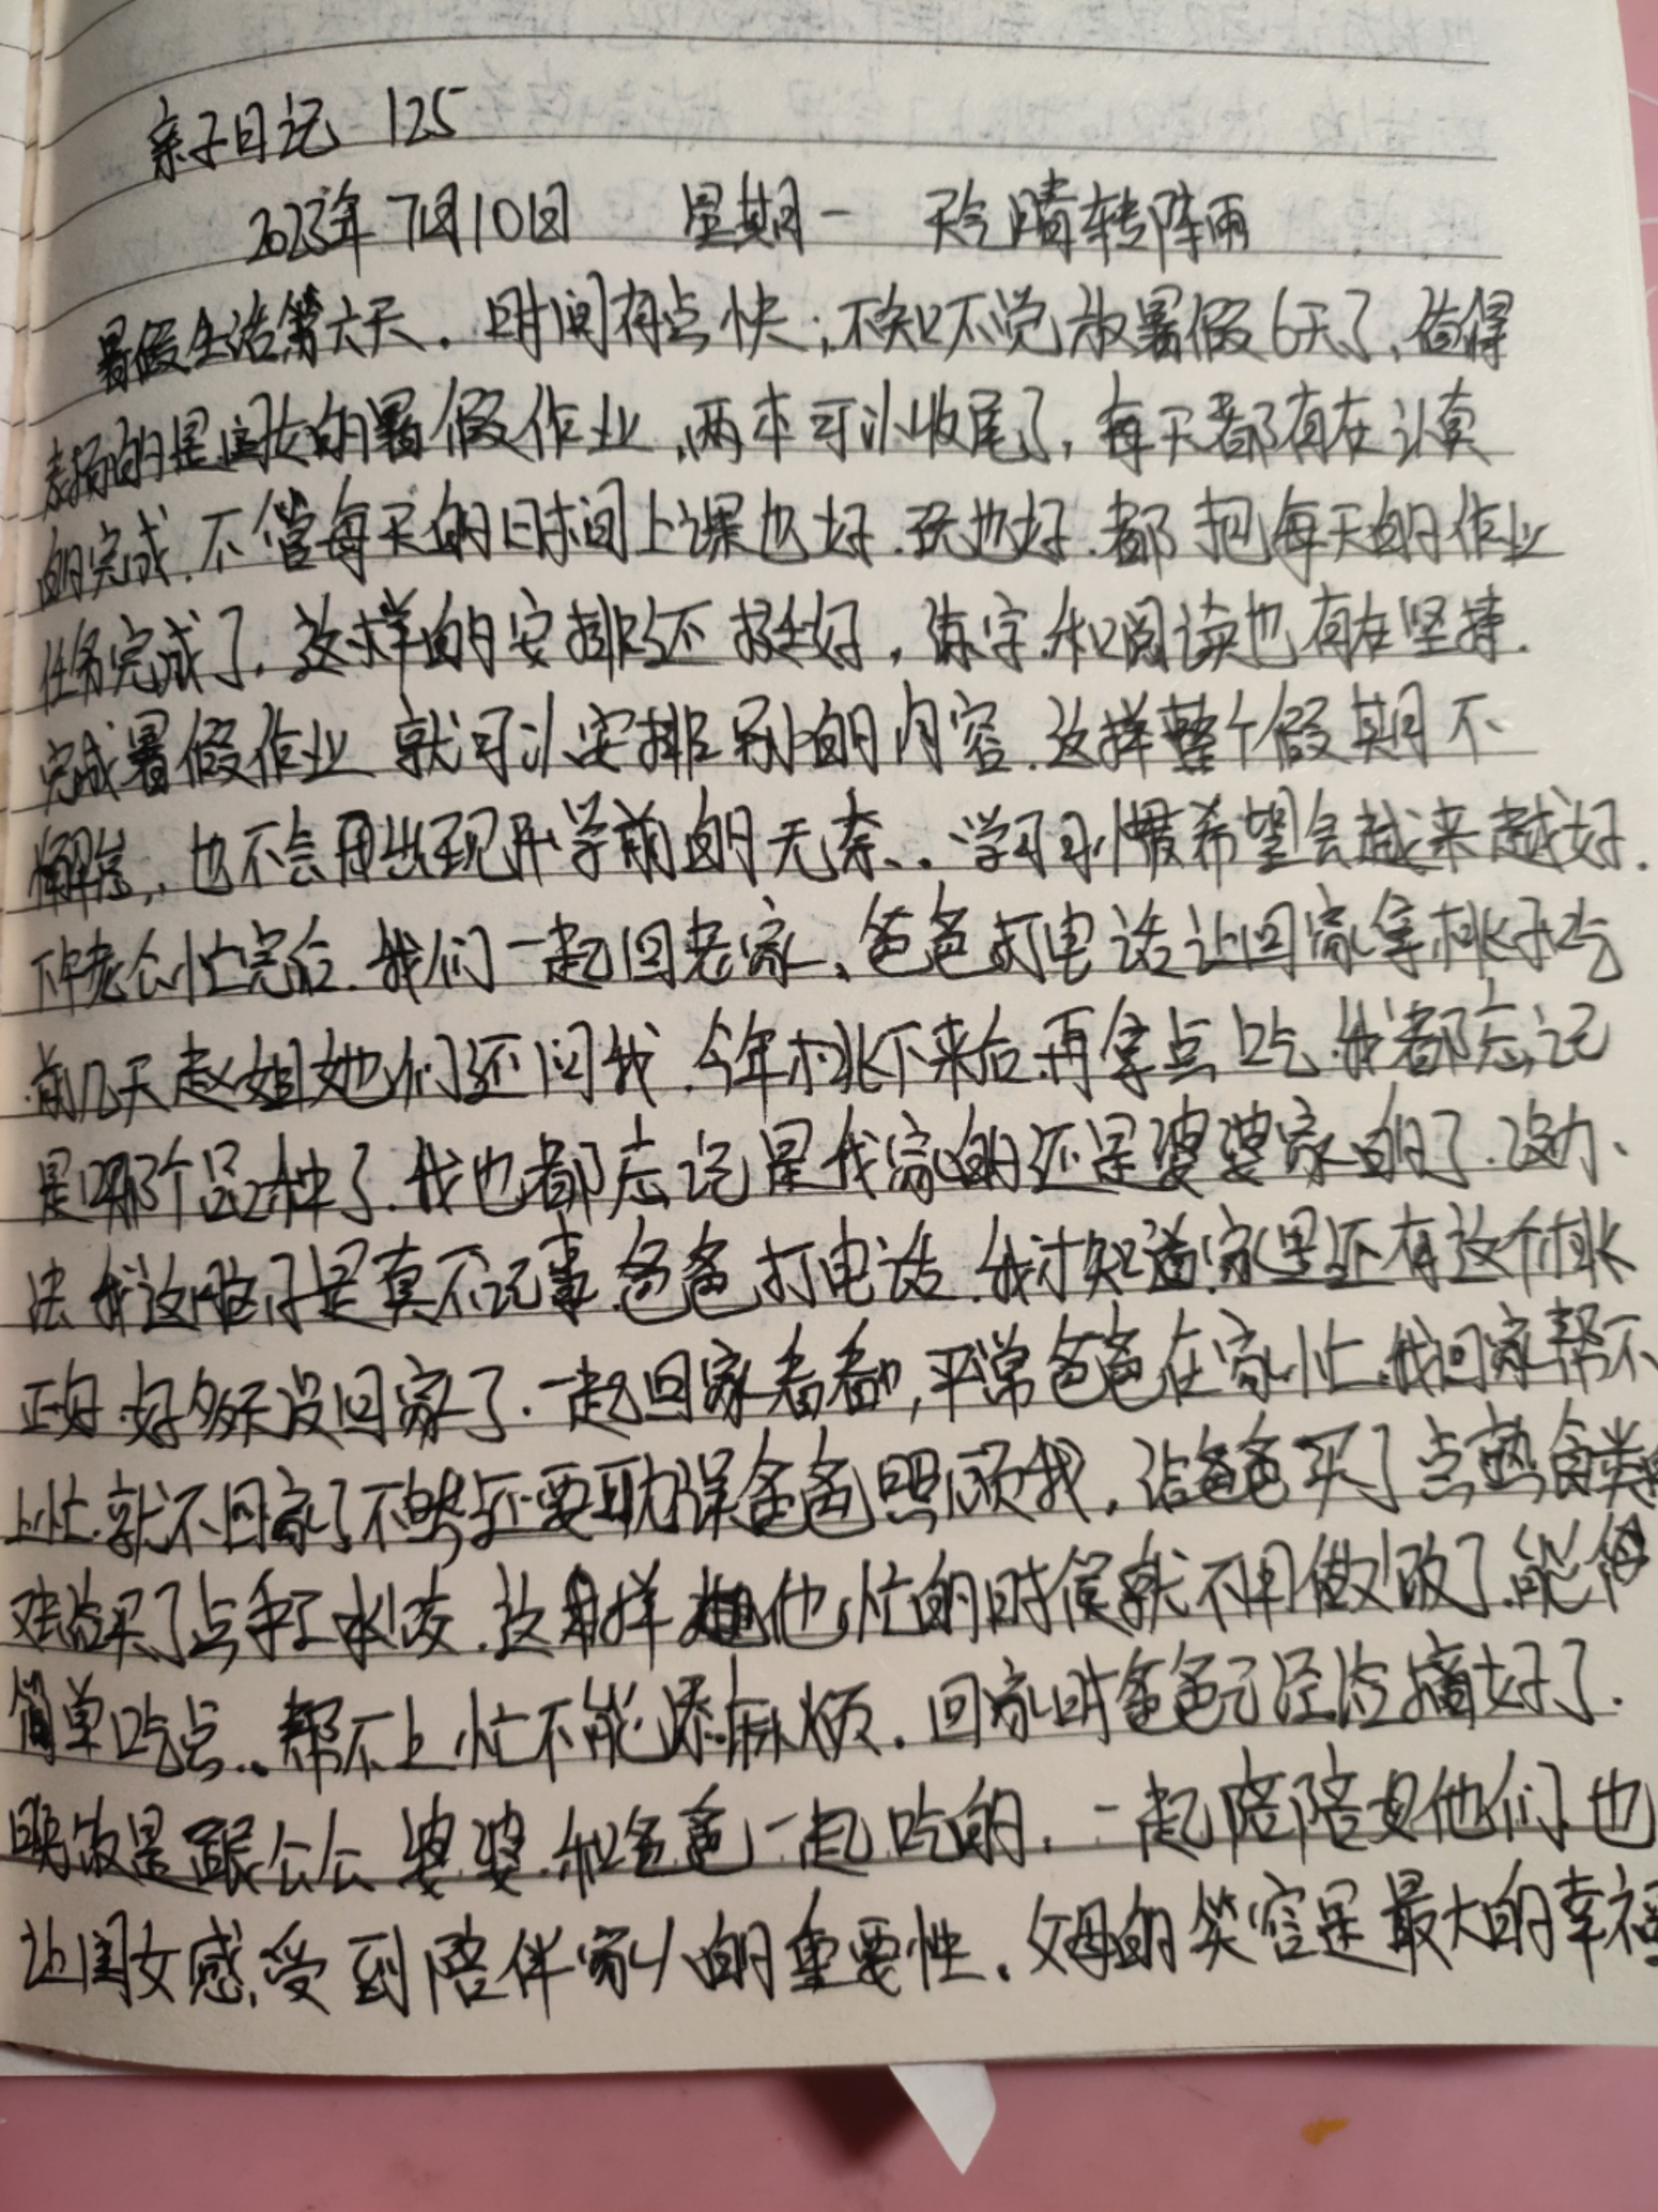 亲子日记 125
2023年7月10日 星期一 天气晴转阵雨
暑假生活第六天.时间有点快;不知不觉放暑假6天了,值得
表扬的是闺女的暑假作业,两本可以收尾了,每天都有在认真
的完成.不管每天的时间上课也好.玩也好.都把每天的作业
任务完成了.这样的安排还挺好,练字.和阅读也有在坚持.
完成暑假作业就可以安排别的内容.这样整个假期不
懈怠,也不会出现开学前的无奈、.学习习惯希望会越来越好.
下午老公忙完后.我们一起回老家.爸爸打电话让回家拿桃子吃
前几天赵姐她们还问我.今年桃下来后再拿点吃.我都忘记
是哪个品种了.我也都忘记是我家的还是婆婆家的了.没办、
法我这脑子是真不记事.爸爸打电话.我才知道家里还有这个桃
正好.好多天没回家了.一起回家看看,平常爸爸在家忙.我回家帮不
上忙.就不回家了不然还要耽误爸爸照顾我.给爸爸买了点熟食类
买了点手工水饺.这样他忙的时候就不用做饭了.能
简单吃点..帮不上忙不能添麻烦.回家时爸爸已经给摘好了.
晚饭是跟公公婆婆.和爸爸一起吃的.一起陪陪他们.也
让闺女感受到陪伴家人的重要性.父母的笑容是最大的幸福